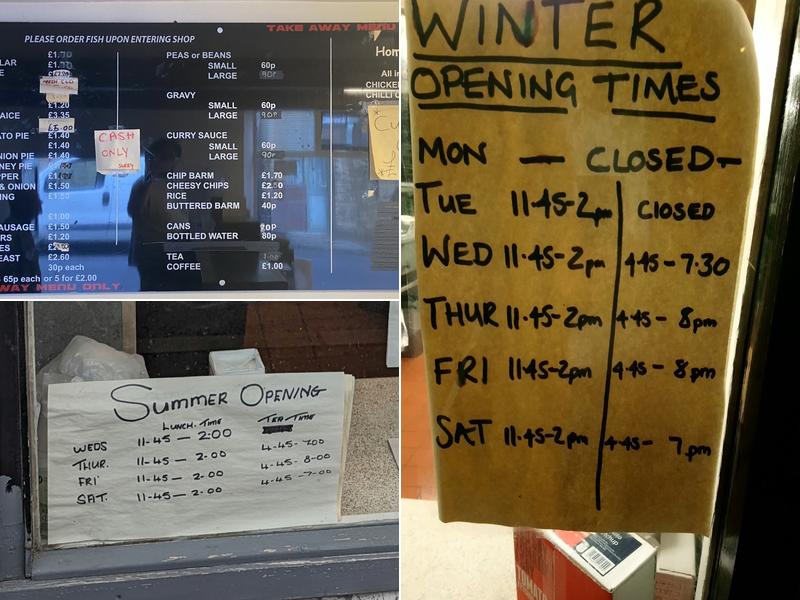 PLEASE ORDER FISH UPON ENTERING SHOP
TAKE AWAY MENU
£1.70
LAR £1.70
E
£1.20
AICE £3.35
£5.00
ATO PIE £1.40
£1.40
NION PIE £1.40
NEY PIE
PPER £1
& ONION £1.50
ING £1.50
£1.00
AUSAGE £1.50
ERS £1.20
ES
EAST £2.60
30p each
65p each or 5 for £2.00
WAY MENU ONLY
CASH
ONLY
SORRY
PEAS or BEANS
SMALL 60p
LARGE 90p
GRAVY
SMALL 60p
LARGE 90p
CURRY SAUCE
SMALL 60p
LARGE 90p
CHIP BARM £1.70
CHEESY CHIPS £2.50
RICE £1.20
BUTTERED BARM 40p
CANS 70p
BOTTLED WATER 80p
TEA
COFFEE £1.00
Hom
All i
CHICKE
CHILLI C
SUMMER OPENING
LUNCH TIME TEA TIME
WEDS 11-45 — 2:00 4-45- 7:00
THUR. 11-45 — 2-00 4-45- 8-00
FRI 11-45 — 2-00 4-45- 7-00
SAT. 11-45 — 2-00
WINTER
OPENING TIMES
MON — CLOSED -
TUE 11.45-2pm CLOSED
WED 11.45-2pm 4.45-7.30
THUR 11.45-2pm 4.45- 8pm
FRI 11.45-2pm 4.45- 8pm
SAT 11.45-2pm 4.45- 7.pm
TOMATO